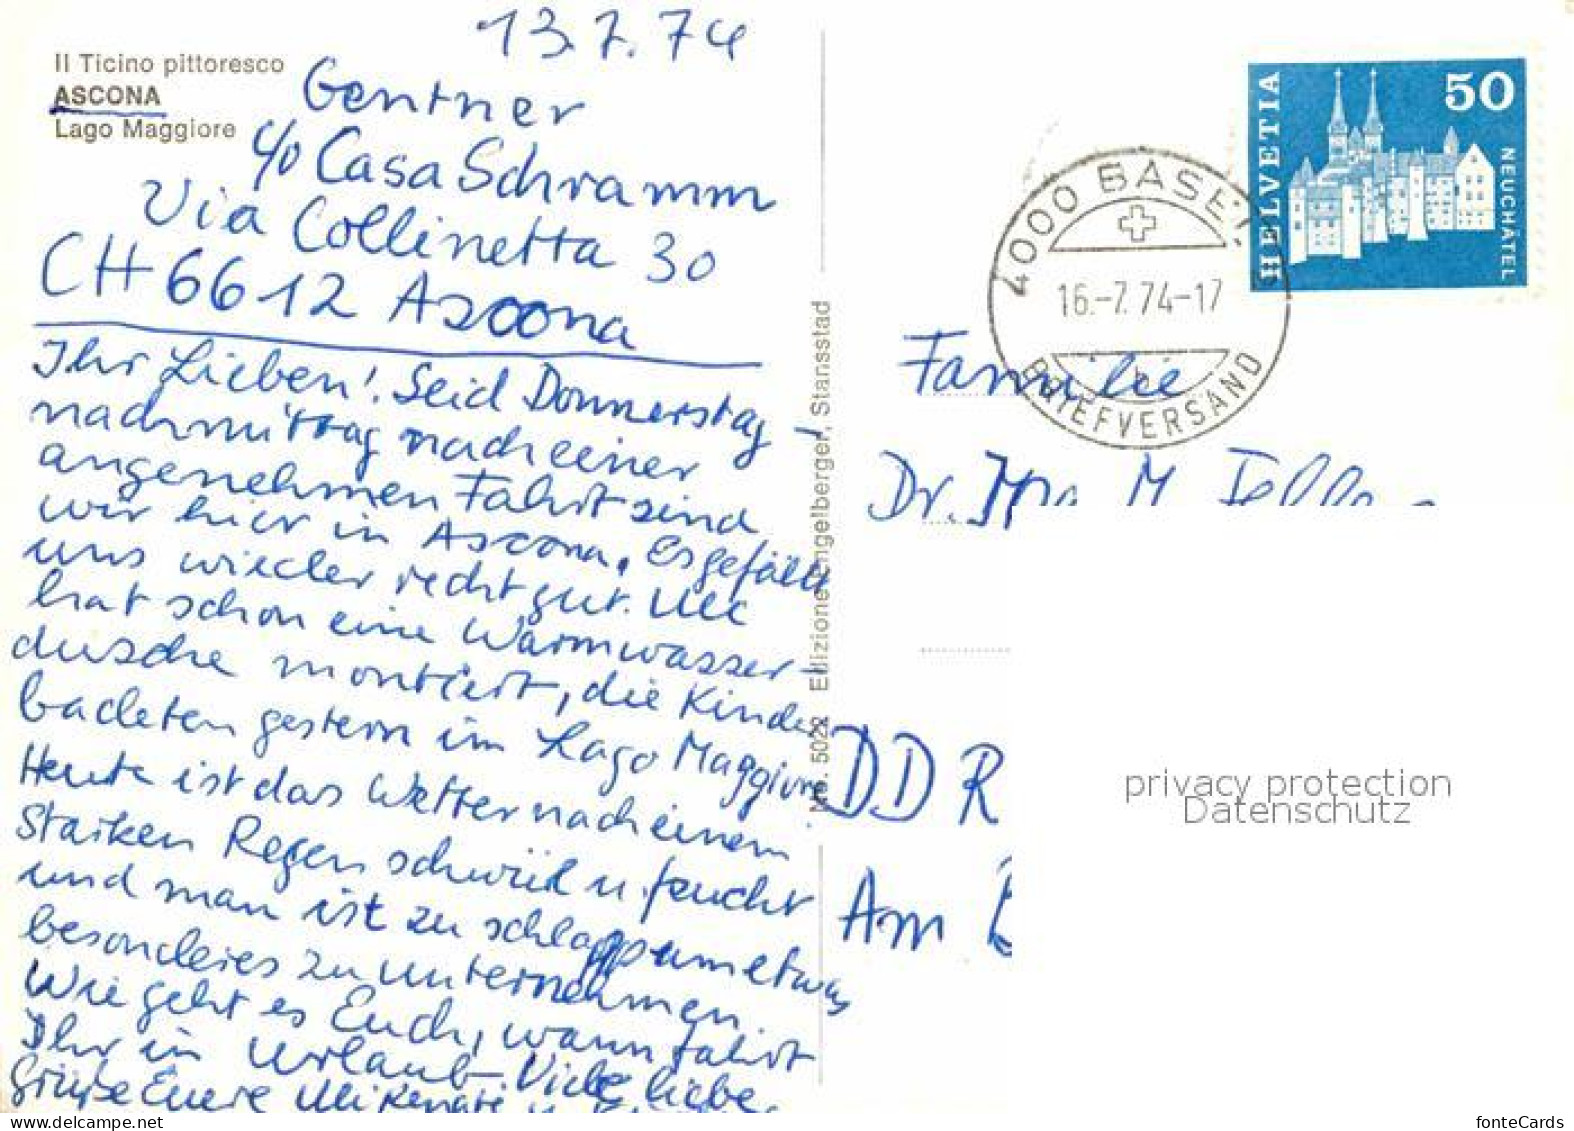 13.7.74
Il Ticino pittoresco
ASCONA
Lago Maggiore
Gentner
c/o Casa Schramm
Via Collinetta 30
CH 6612 Ascona
Ihr Lieben! Seid Donnerstag-
nachmittag nach einer
angenehmen Fahrt sind
wir hier in Ascona. Es gefällt
uns wieder recht gut. Uli
hat schon eine Warmwasser-
dusche montiert, die Kinder
badeten gestern im Lago Maggiore
Heute ist das Wetter nach einem
Starken Regen schwül u. feucht
und man ist zu schlapp um etwas
besonderes zu unternehmen.
Wie geht es Euch, wann fahrt
Ihr in Urlaub- Viele liebe
Grüße Euere Uli Renate u.
No. 5022 Edizione Engelberger, Stansstad
HELVETIA
50
NEUCHÂTEL
4000 BASEL
16.-7.74-17
BRIEFVERSAND
Familie
Dr.
DDR
Am
privacy protection
Datenschutz
fonteCards